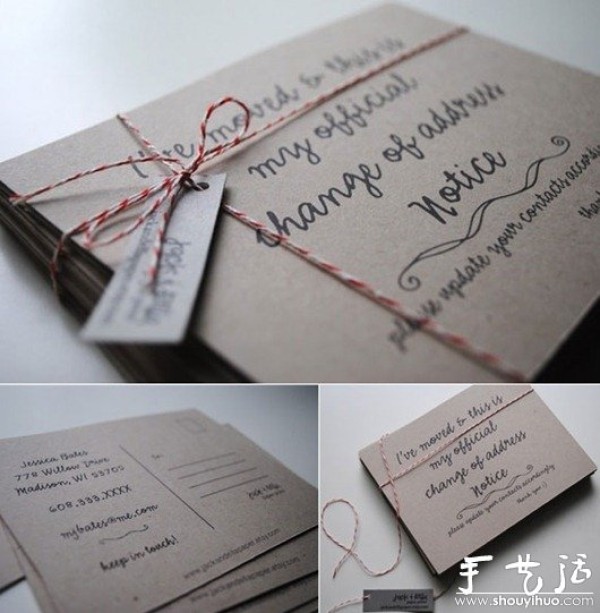 I've moved & this is
my official
change of address
Notice
please update your contacts accordin
than
Jessica Bates
778 Willow Drive
Madison, WI 53705
608.333.XXXX
mybates@me.com
keep in touch!
To:
I've moved & this is
my official
change of address
Notice
please update your contacts accordingly
thank you :)
手艺活
www.shouyihuo.com